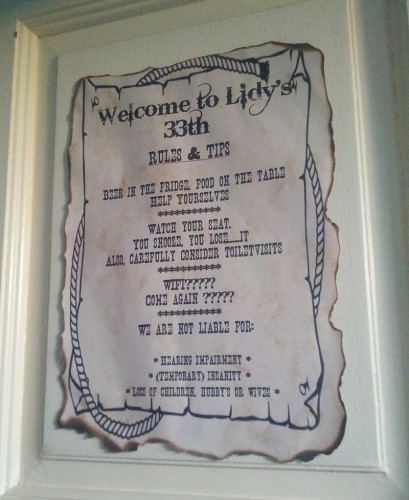 Welcome to Lidy's
33th
RULES & TIPS
BEER IN THE FRIDGE, FOOD ON THE TABLE
HELP YOURSELVES
************
WATCH YOUR SEAT.
YOU SNOOZE, YOU LOSE.....IT
ALSO, CAREFULLY CONSIDER TOILETVISITS
************
WIFI?????
COME AGAIN ?????
************
WE ARE NOT LIABLE FOR:
* HEARING IMPAIRMENT *
* (TEMPORARY) INSANITY *
* LOSS OF CHILDREN, HUBBY'S OR WIVES *